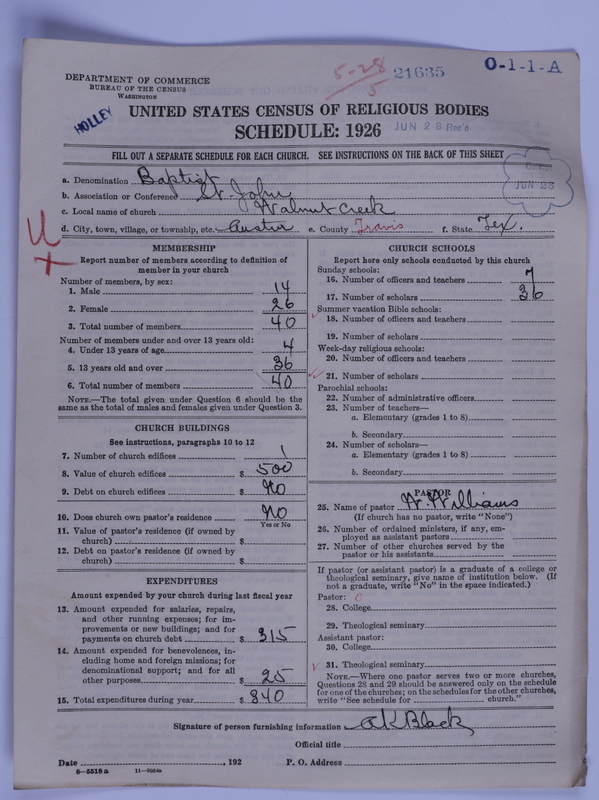 DEPARTMENT OF COMMERCE
BUREAU OF THE CENSUS
WASHINGTON
HOLLEY
5-28
5
21635
O-1-1-A
UNITED STATES CENSUS OF RELIGIOUS BODIES
SCHEDULE: 1926
JUN 28 Rec'd
FILL OUT A SEPARATE SCHEDULE FOR EACH CHURCH. SEE INSTRUCTIONS ON THE BACK OF THIS SHEET
JUN 28
a. Denomination Baptist
b. Association or Conference St. John
c. Local name of church Walnut Creek
d. City, town, village, or township, etc. Austin e. County Travis f. State Tex.
U
+
MEMBERSHIP
Report number of members according to definition of
member in your church
Number of members, by sex:
1. Male 14
2. Female 26
3. Total number of members 40
Number of members under and over 13 years old:
4. Under 13 years of age 4
5. 13 years old and over 36
6. Total number of members 40
NOTE.—The total given under Question 6 should be
same as the total of males and females given under Question 3.
CHURCH BUILDINGS
See instructions, paragraphs 10 to 12
7. Number of church edifices 1
8. Value of church edifices $ 500
9. Debt on church edifices $ No
10. Does church own pastor's residence No
Yes or No
11. Value of pastor's residence (if owned by
church) $
12. Debt on pastor's residence (if owned by
church) $
EXPENDITURES
Amount expended by your church during last fiscal year
13. Amount expended for salaries, repairs,
and other running expenses; for im-
provements or new buildings; and for
payments on church debt $ 315
14. Amount expended for benevolences, in-
cluding home and foreign missions; for
denominational support; and for all
other purposes $ 25
15. Total expenditures during year $ 340
CHURCH SCHOOLS
Report here only schools conducted by this church
Sunday schools:
16. Number of officers and teachers 7
17. Number of scholars 36
Summer vacation Bible schools:
18. Number of officers and teachers
19. Number of scholars
Week-day religious schools:
20. Number of officers and teachers
21. Number of scholars
Parochial schools:
22. Number of administrative officers
23. Number of teachers—
a. Elementary (grades 1 to 8)
b. Secondary
24. Number of scholars—
a. Elementary (grades 1 to 8)
b. Secondary
PASTOR
25. Name of pastor W. Williams
(If church has no pastor, write "None")
26. Number of ordained ministers, if any, em-
ployed as assistant pastors
27. Number of other churches served by the
pastor or his assistants
If pastor (or assistant pastor) is a graduate of a college or
theological seminary, give name of institution below. (If
not a graduate, write "No" in the space indicated.)
Pastor: 0
28. College
29. Theological seminary
Assistant pastor:
30. College
31. Theological seminary
NOTE.—Where one pastor serves two or more churches,
Questions 28 and 29 should be answered only on the schedule
for one of the churches; on the schedules for the other churches,
write "See schedule for church."
Signature of person furnishing information A K Black
Official title
Date , 192 P. O. Address
8-5518a 11-9054a